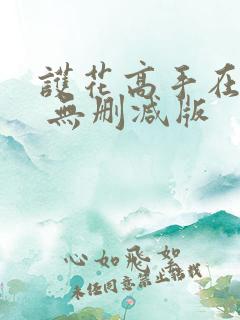 護花高手在
無删減版
心如飛絮
未经同意禁止转载